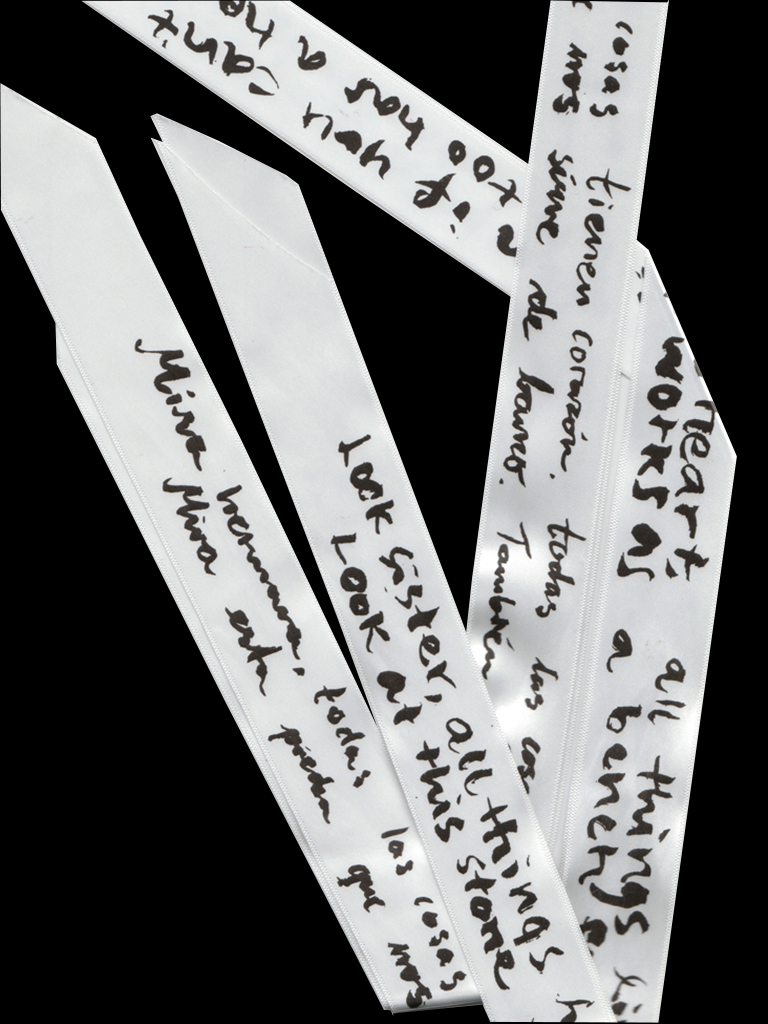 Mira hermana, todas las cosas
Mira esta piedra que nos
Look sister, all things
Look at this stone
cosas tienen corazón. todas las
nos sirve de banco. También
heart. all things
works as a bench.
too has a
it. you can't